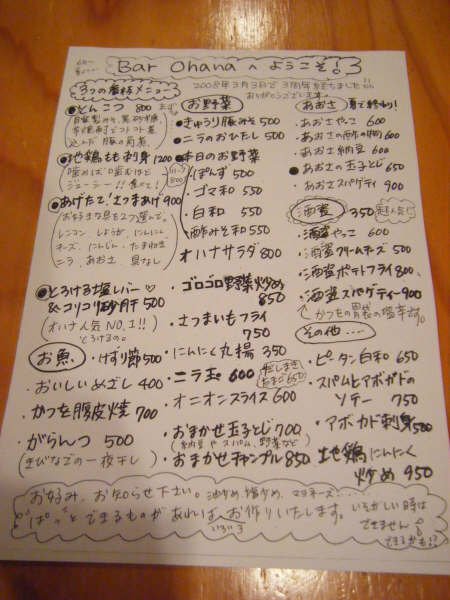 Bar Ohana へ ようこそ!
2008年3月3日で3周年
3つの看板メニュー
●とんこつ 800
●地鶏もも刺身 1200
噛めば噛むほど
ジューシー!!
●あげたて!さつまあげ 900
お好きな具を2つ選んで。
レンコン しょうが にんにく
チーズ、にんじん、たまねぎ
ニラ、あおさ 具なし
●とろける塩レバー
&コリコリ砂肝 500
(オハナ人気NO.1!!)
お魚
・けずり節 500
・おいしいめざし 400
・かつを腹皮焼 700
・がらんつ 500
(きびなごの一夜干し)
お野菜
●きゅうり豚みそ 500
●ニラのおひたし 500
●本日のお野菜
ぽんず 500
ゴマ和 550
白和 550
酢みそ和 550
オハナサラダ 800
・ゴロゴロ野菜炒め
850
・さつまいもフライ
750
・にんにく丸揚 350
・ニラ玉 600
だしまき
たまご 650
・オニオンスライス 600
・おまかせ玉子とじ 700
(納豆やスパム、野菜など)
・おまかせチャンプル 850
あおさ
・あおさやっこ 600
・あおさの酢の物 600
・あおさ納豆 600
●あおさの玉子とじ 650
・あおさスパゲティ 900
酒盗 350
・酒盗やっこ 600
・酒盗クリームチーズ 500
・酒盗ポテトフライ 800
・酒盗スパゲティー 900
かつをの胃袋の塩辛
その他....
・ピータン白和 650
・スパムとアボガドの
ソテー 750
・アボカド刺身 500
・地鶏にんにく
炒め 950
お好み、お知らせ下さい。油炒め、塩炒め、マヨネーズ......
"ぱっ"とできるものがあればお作りいたします。いそがしい時は
できません
できるかも!?